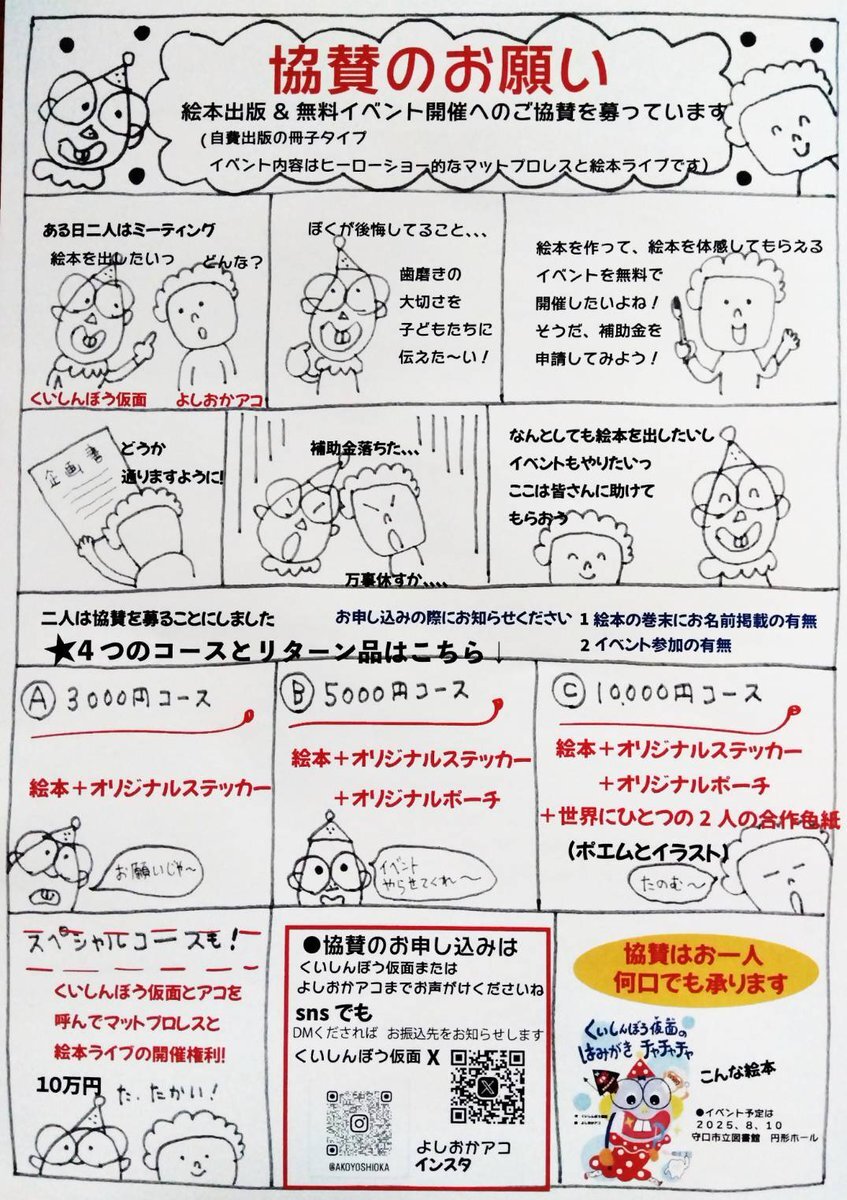 協賛のお願い
絵本出版 & 無料イベント開催へのご協賛を募っています
(自費出版の冊子タイプ
イベント内容はヒーローショー的なマットプロレスと絵本ライブです)
ある日二人はミーティング
絵本を出したいっ
どんな?
くいしんぼう仮面
よしおかアコ
ぼくが後悔してること、、、
歯磨きの
大切さを
子どもたちに
伝えた〜い!
絵本を作って、絵本を体感してもらえる
イベントを無料で
開催したいよね!
そうだ、補助金を
申請してみよう!
企画書
どうか
通りますように!
補助金落ちた、、、
万事休すか、、、、
なんとしても絵本を出したいし
イベントもやりたいっ
ここは皆さんに助けて
もらおう
二人は協賛を募ることにしました
お申し込みの際にお知らせください
1 絵本の巻末にお名前掲載の有無
2 イベント参加の有無
★4つのコースとリターン品はこちら↓
Ⓐ 3000円コース
絵本+オリジナルステッカー
お願いじゃ〜
Ⓑ 5000円コース
絵本+オリジナルステッカー
+オリジナルポーチ
イベント
やらせてくれ〜
Ⓒ 10,000円コース
絵本+オリジナルステッカー
+オリジナルポーチ
+世界にひとつの2人の合作色紙
(ポエムとイラスト)
たのむ〜
スペシャルコースも!
くいしんぼう仮面とアコを
呼んでマットプロレスと
絵本ライブの開催権利!
10万円
た、たかい!
●協賛のお申し込みは
くいしんぼう仮面または
よしおかアコまでお声がけくださいね
snsでも
DMくだされば お振込先をお知らせします
くいしんぼう仮面 X
@AKOYOSHIOKA
よしおかアコ
インスタ
協賛はお一人
何口でも承ります
くいしんぼう仮面の
はみがきチャチャチャ
こんな絵本
●イベント予定は
2025、8、10
守口市立図書館 円形ホール